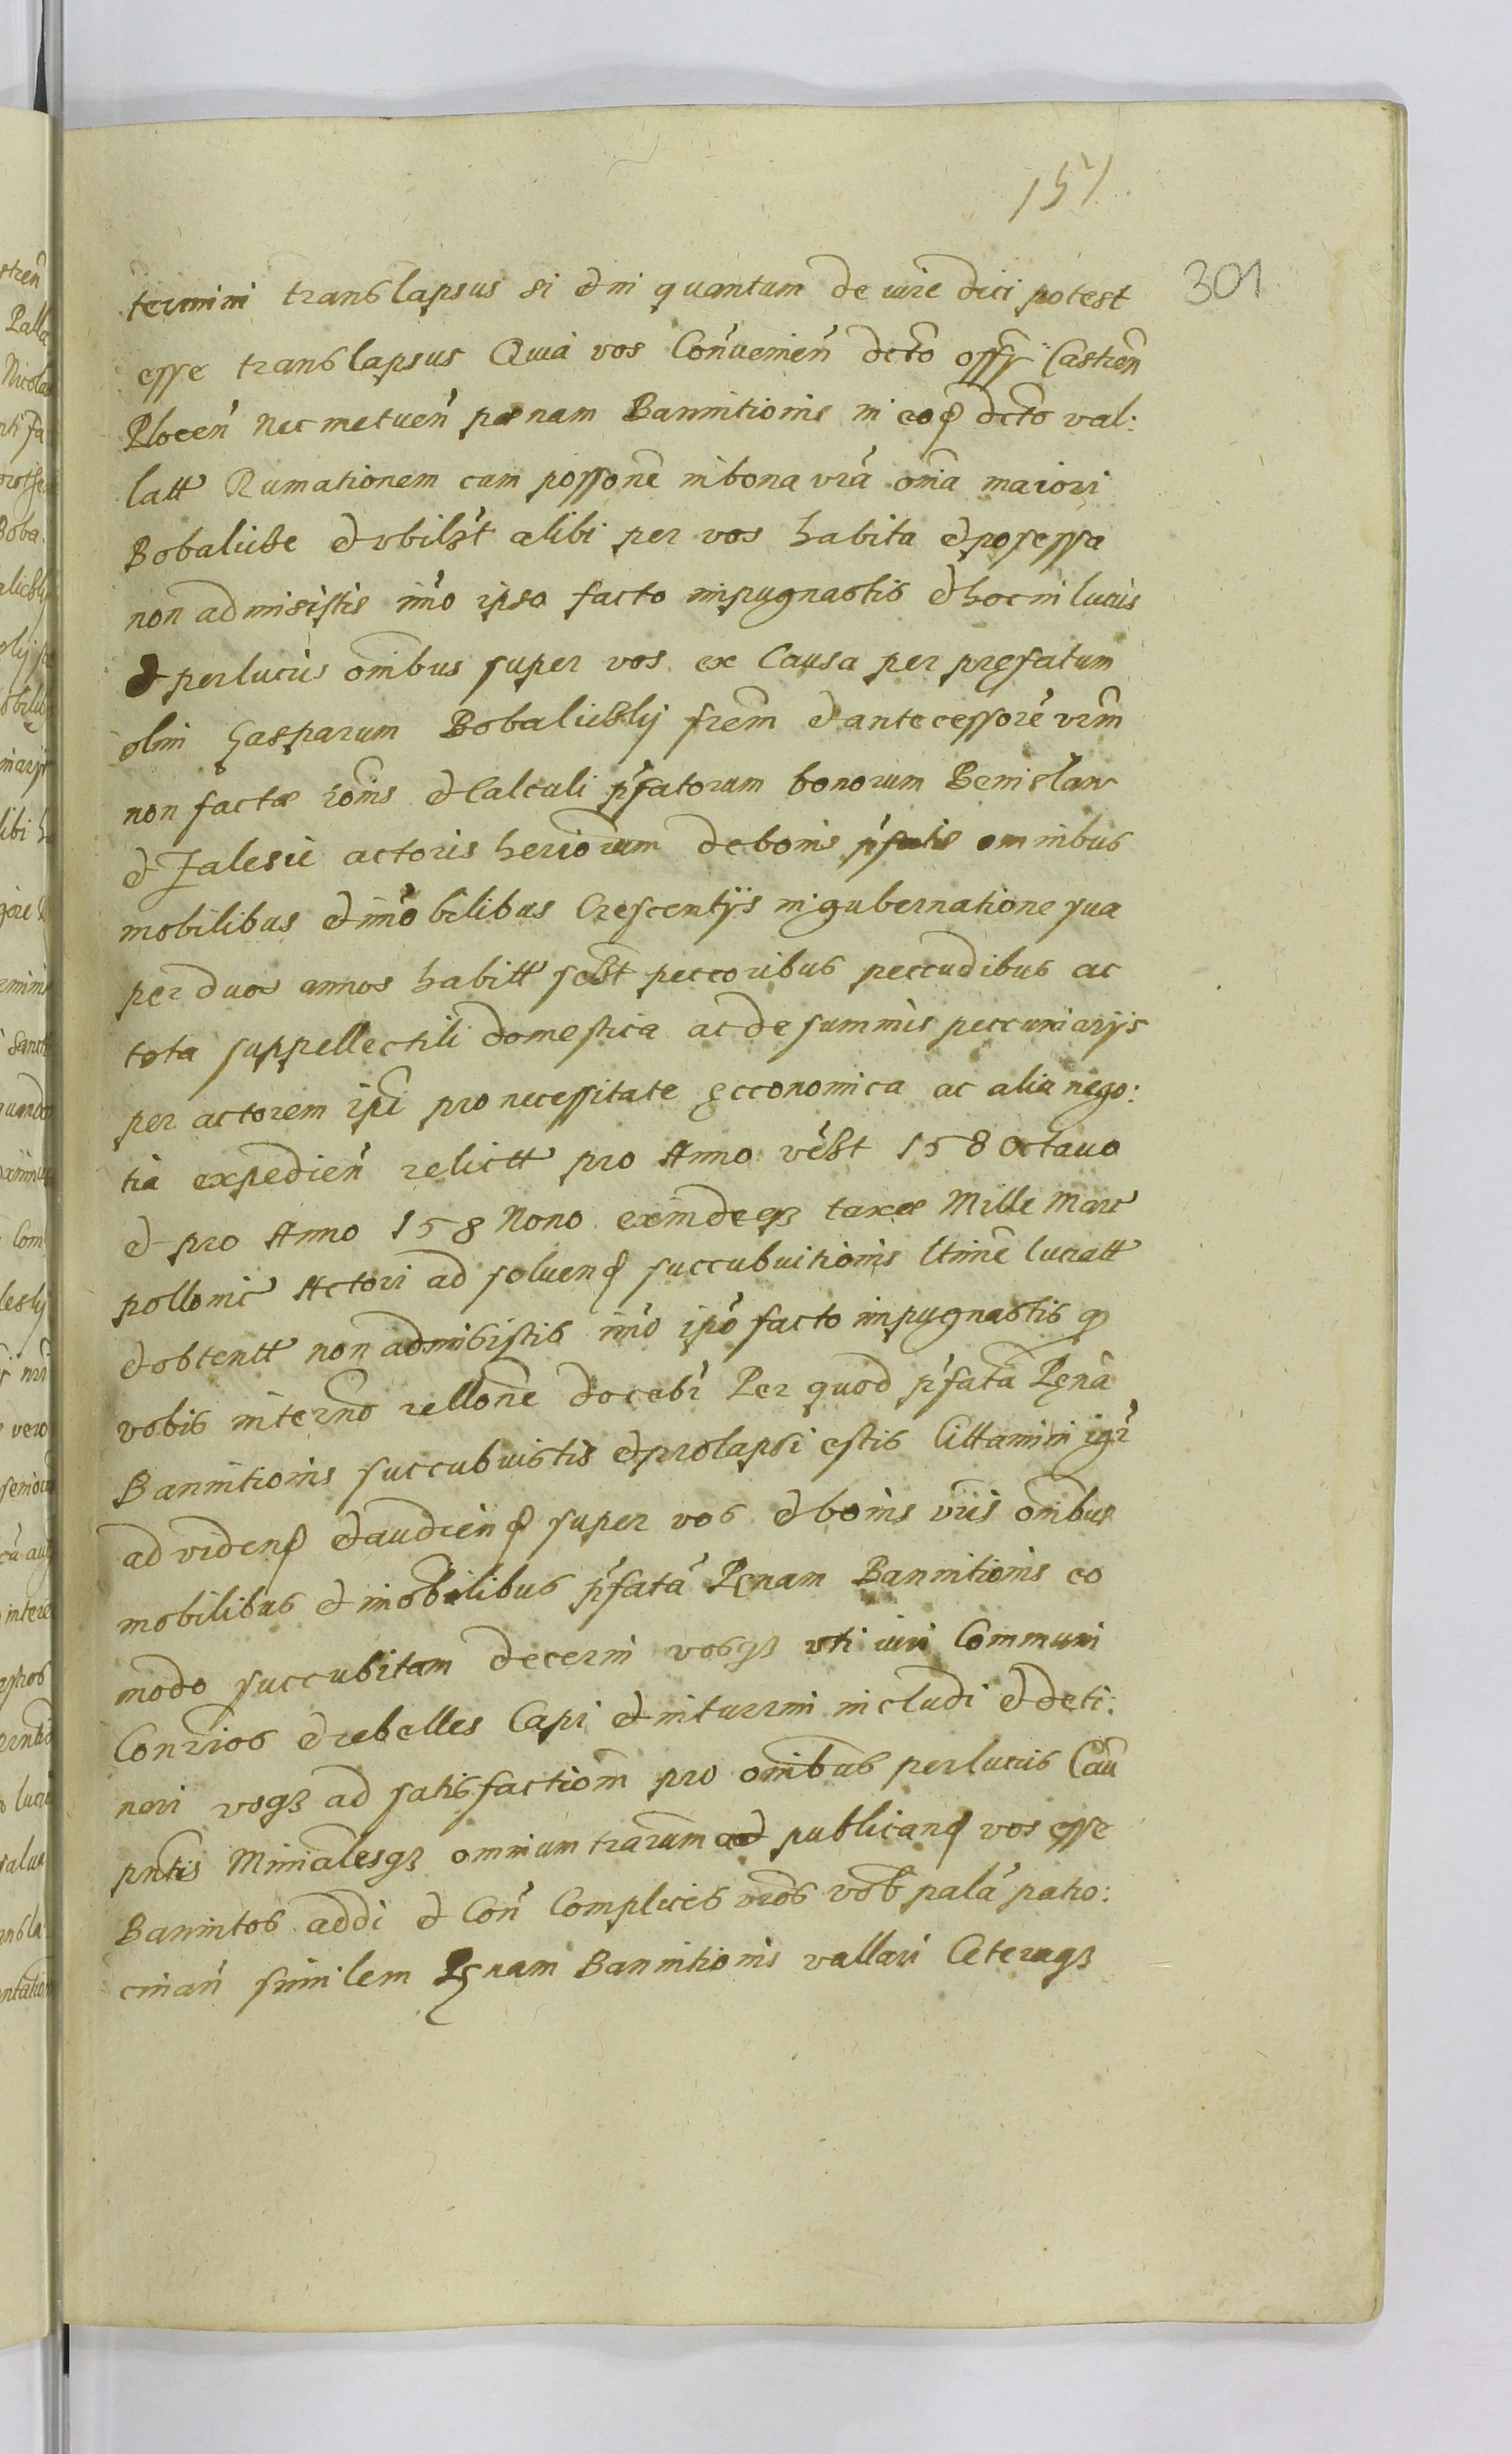 151
301
termini translapsus si et in quantum de iure dici potest
esse translapsus Quia vos Conuenien decto offy Castren
Plocen nec metuen pænam Bannitionis in eod decto val:
latt Rumationem cum possone in bona vra oīa maiori
Bobalicze et vbilbt alibi per vos habita et posessa
non admisistis imo ipso facto impugnastis et hoc in lucris
et perlucris omibus super vos ex Causa per prefatum
olim Gasparum Bobaliczkij frem et antecessore vrm
non factæ roīns et Calculi pfatorum bonorum Bemislaw
et Zalesie actoris heriorum de bonis pfatis omnibus
mobilibus et imobilibus Crescentijs in gubernatione sua
per duos annos habitt sclt peccoribus peccudibus ac
tota suppellectili domestica ac de summis peccuniarijs
per actorem ipi pro necessitate ecconomica ac alia nego:
tia expedien relictt pro Anno vclt 158 octauo
et pro Anno 158 Nono exindeqз taxæ Mille Marc
pollonic Actori ad soluend succubuitionis ltime lucratt
et obtentt non admisistis imo ipo facto impugnastis q
vobis in termo rellone docebr Per quod pfata Pęna
Bannitionis succubuistis et prolapsi estis Cittamini igr
ad vidend et audiend super vos et bonis vris omibus
mobilibus et imobilibus pfata Pęnam Bannitionis eo
modo succubitam decerni vosqз vti iuri Communi
Conrios et rebelles Capi et in turrim includi et deti:
neri vosqз ad satisfactiom pro omibus perlucris Cau
pntis Minialesqз omnium trarum ad publicand vos esse
Bannitos addi et Con Complices vros vob pala patro:
cinan similem Pęnam Bannitionis vallari Ceteraqз